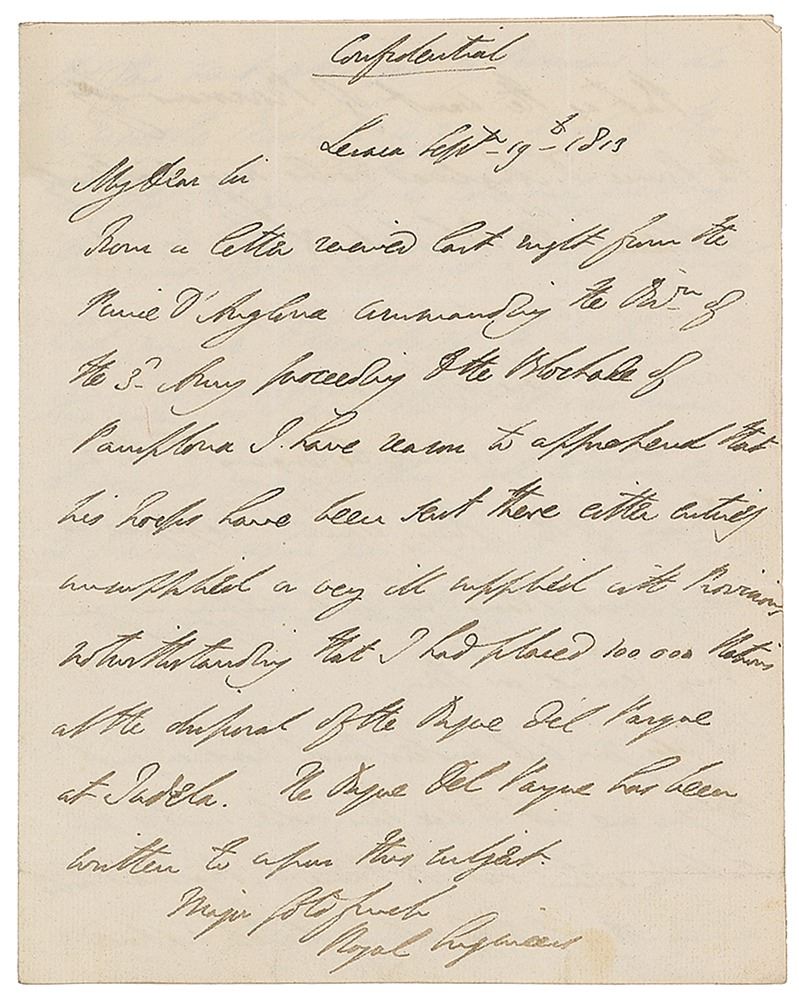 Confidential
Lesaca Septr 19th 1813
My Dear Sir
From a letter received last night from the
Prince D'Anglona commanding the Divn of
the 3d Army proceeding to the Blockade of
Pamplona I have reason to apprehend that
his troops have been sent there either entirely
unsupplied or very ill supplied with Provisions
notwithstanding that I had placed 100.000 Rations
at the disposal of the Duque Del Parque
at Tudela. The Duque Del Parque has been
written to upon this subject.
Major Goldfinch
Royal Engineers